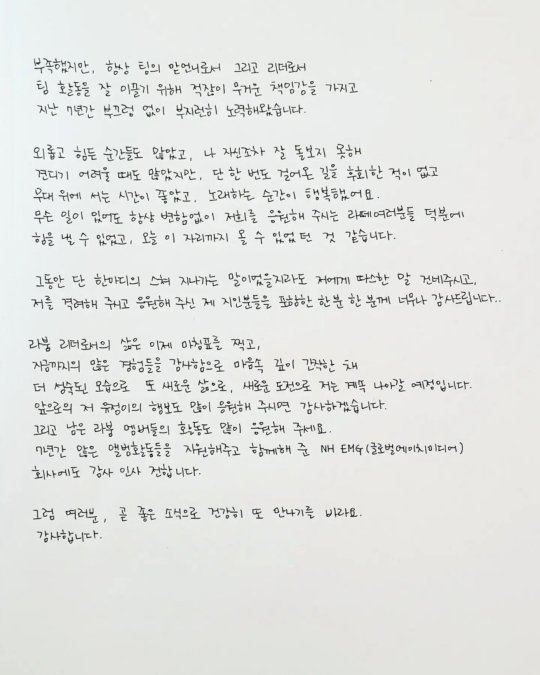 부족했지만, 항상 팀의 맏언니로서 그리고 리더로서
팀 활동을 잘 이끌기 위해 적잖이 무거운 책임감을 가지고
지난 7년간 부끄럼 없이 부지런히 노력해왔습니다.
외롭고 힘든 순간들도 많았고, 나 자신조차 잘 돌보지 못해
견디기 어려울 때도 많았지만, 단 한 번도 걸어온 길을 후회한 적이 없고
무대 위에 서는 시간이 좋았고, 노래하는 순간이 행복했어요.
무슨 일이 있어도 항상 변함없이 저희를 응원해 주시는 라떼여러분들 덕분에
힘을 낼 수 있었고, 오늘 이 자리까지 올 수 있었던 것 같습니다.
그동안 단 한마디의 스쳐 지나가는 말이었을지라도 저에게 따스한 말 건네주시고,
저를 격려해 주시고 응원해 주신 제 지인분들을 포함한 한분 한 분께 너무나 감사드립니다..
라붐 리더로서의 삶은 이제 마침표를 찍고,
지금까지의 많은 경험들을 감사함으로 마음속 깊이 간직한 채
더 성숙된 모습으로 또 새로운 삶으로, 새로운 도전으로 저는 계속 나아갈 예정입니다.
앞으로의 저 유정이의 행보도 많이 응원해 주시면 감사하겠습니다.
그리고 남은 라붐 멤버들의 활동도 많이 응원해 주세요.
7년간 많은 앨범활동들을 지원해주고 함께해 준 NH EMG(글로벌에이치미디어)
회사에도 감사 인사 전합니다.
그럼 여러분, 곧 좋은 소식으로 건강히 또 만나기를 바라요.
감사합니다.